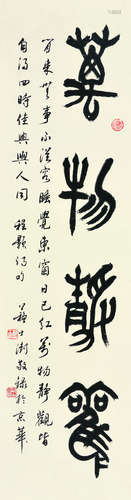 萬物靜觀
閒來無事不從容睡覺東窗日已紅萬物靜觀皆
自得四時佳興與人同 程顥詩句 士澍敬錄於京華